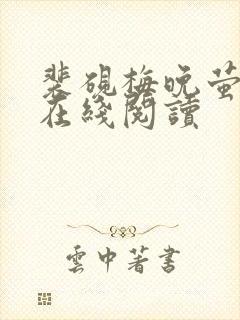 裴硯梅晚萤
在綫閱讀
雲中著書